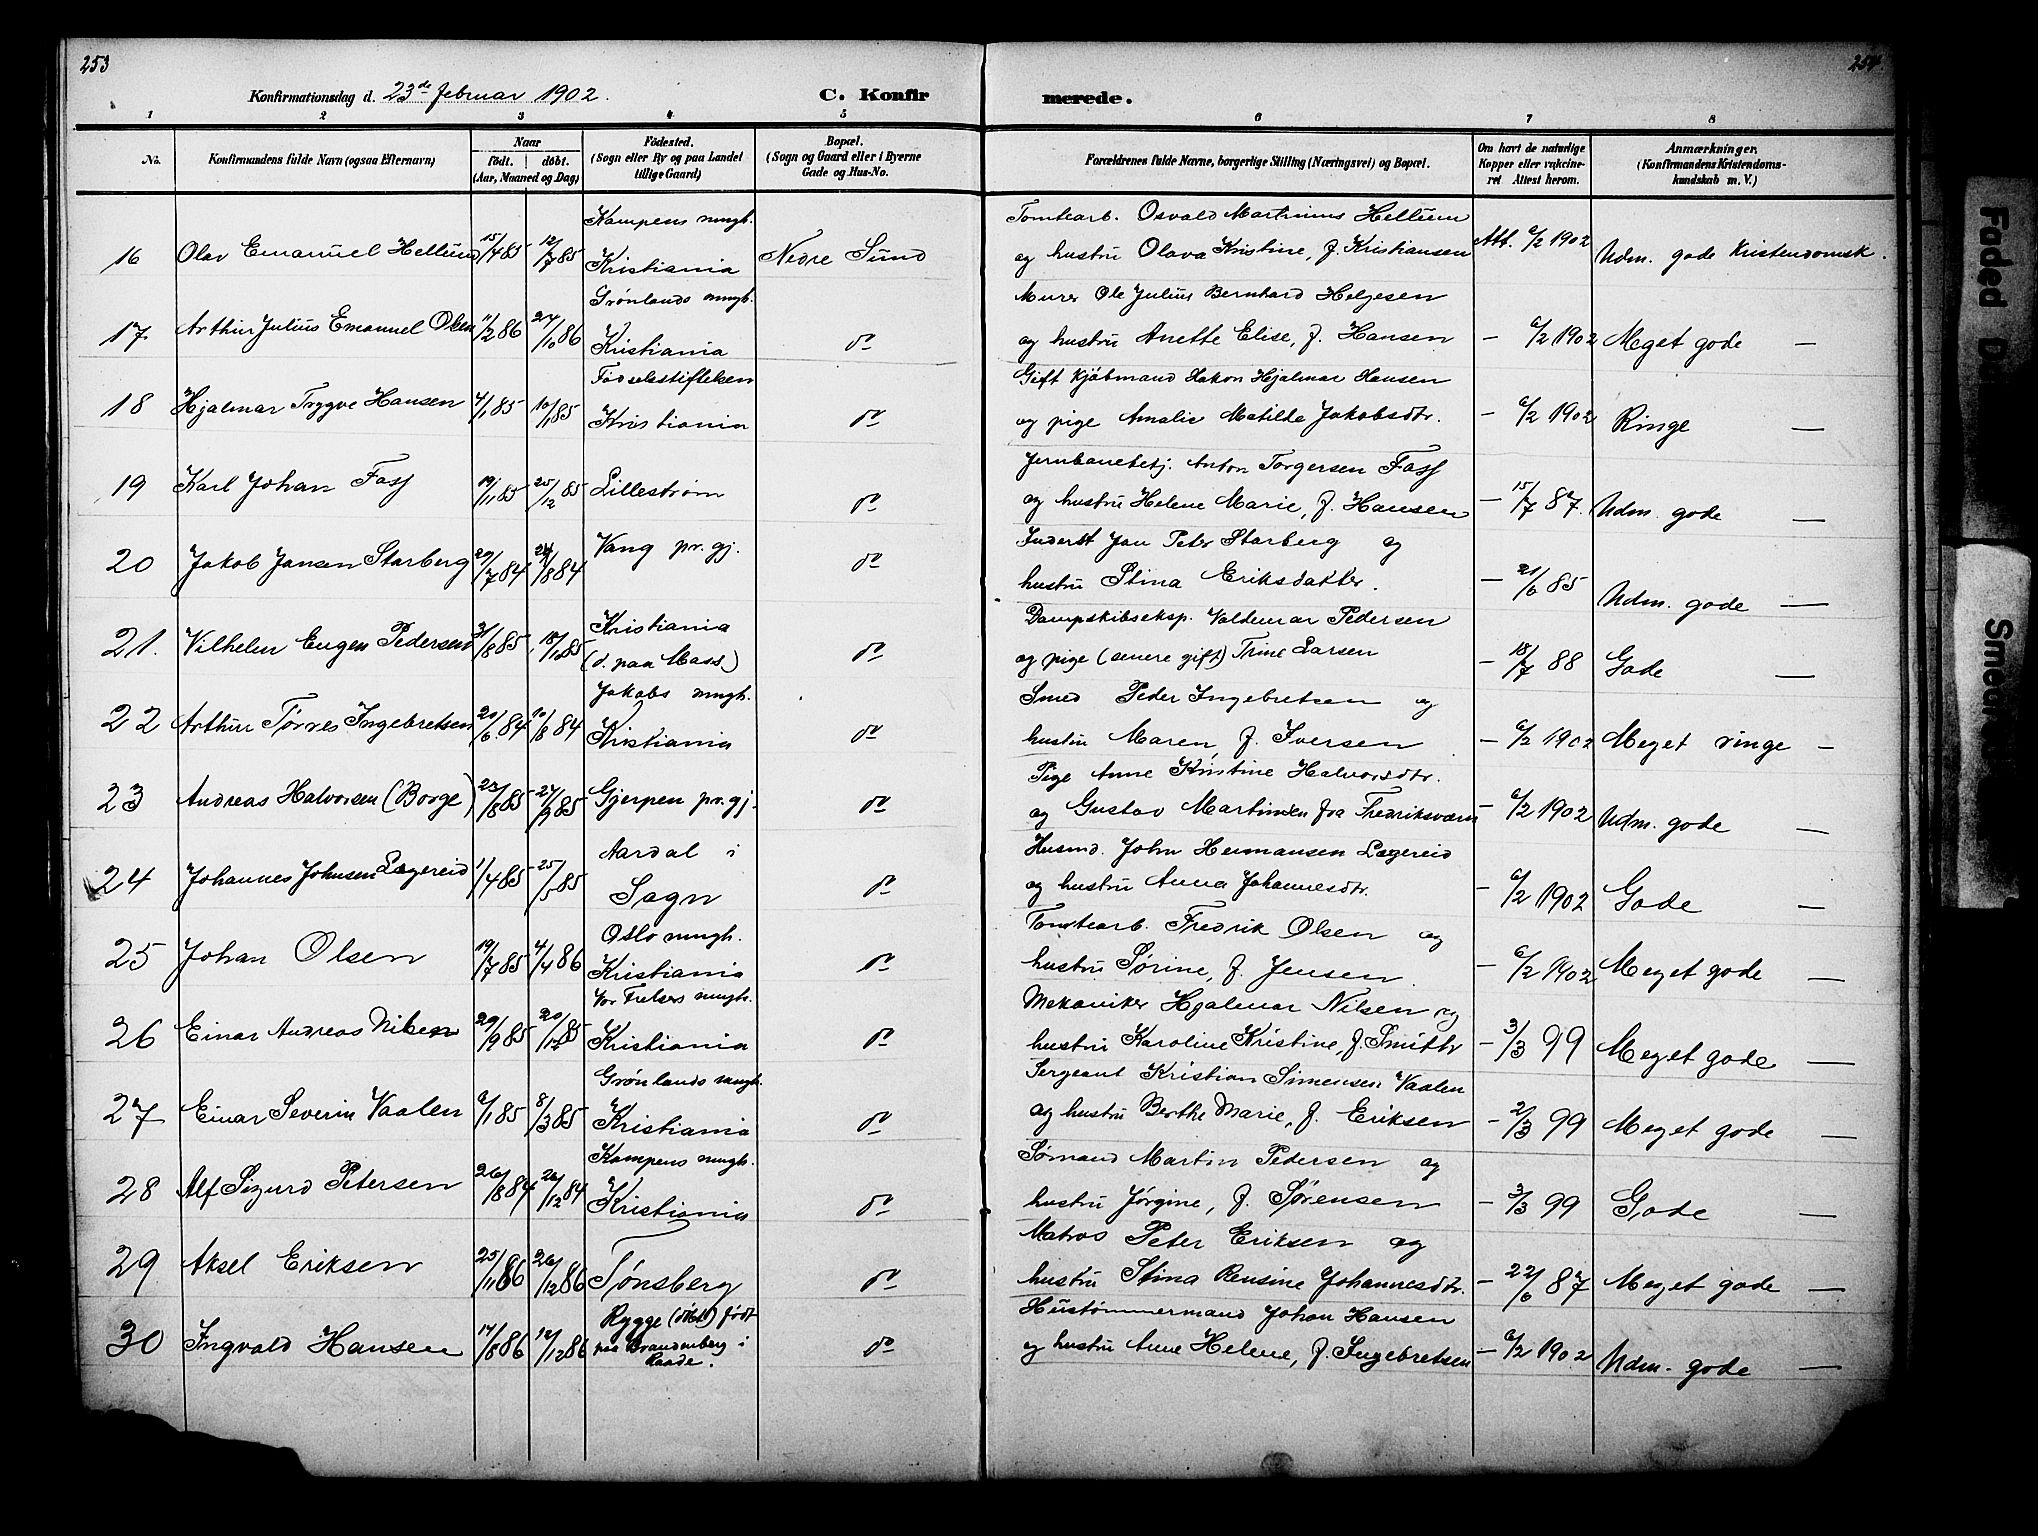 253
254
Konfirmationsdag d. 23de februar 1902.
C. Konfirmerede.
1 2 3 4 5 6 7 8
No.
Konfirmandens fulde Navn (ogsaa Efternavn)
Naar
født. døbt.
(Aar, Maaned og Dag)
Fødested.
(Sogn eller By og paa Landet
tillige Gaard)
Bopæl.
(Sogn og Gaard eller i Byerne
Gade og Hus-No.
Forældrenes fulde Navne, borgerlige Stilling (Næringsvei) og Bopæl.
Om havt de naturlige
Kopper eller vakcine-
ret Attest herom.
Anmærkninger.
(Konfirmandens Kristendoms-
kundskab m. V.)
Kampens mngh. Tomtearb. Osvald Martinius Hellum
16 Olav Emanuel Hellum 15/4 85 12/7 85 Kristiania Nedre Sund og hustru Olava Kristine, f. Kristiansen Att. 6/2 1902 Udm. gode Kristendomsk.
Grønlands mngh. Murer Ole Julius Bernhard Helgesen
17 Arthur Julius Emanuel Olsen 11/2 86 24/10 86 Kristiania do og hustru Anette Elise, f. Hansen — 6/2 1902 Meget gode —
Fødselsstiftelsen Gift Kjøbmand Hakon Hjalmar Hansen
18 Hjalmar Trygve Hansen 4/1 85 10/1 85 Kristiania do og pige Amalie Matilde Jakobsdtr. — 6/2 1902 Ringe —
Jernbanebetj. Anton Torgersen Foss
19 Karl Johan Foss 19/11 85 25/12 85 Lillestrøm do og hustru Helene Marie, f. Hansen — 15/7 87. Udm. gode —
Vang pr. gj. Inderst Jan Peter Starberg og
20 Jakob Jansen Starberg 29/7 84 24/8 84 do hustru Stina Eriksdatter. — 21/6 85 Udm. gode —
Kristiania Dampskibseksp. Valdemar Pedersen
21. Vilhelm Eugen Pedersen 31/8 85 18/10 85 (d. paa Moss) do og pige (senere gift) Trine Larsen — 18/7 88 Gode —
Jakobs mngh. Smed Peder Ingebretsen og
22 Arthur Tørres Ingebretsen 20/6 84 10/8 84 Kristiania do hustru Maren, f. Iversen — 6/2 1902 Meget ringe —
Pige Anne Kristine Halvorsdtr.
23 Andreas Halvorsen (Borge) 23/8 85 27/9 85 Gjerpen pr. gj. do og Gustav Martinsen fra Fredriksværn — 6/2 1902 Udm. gode —
Aardal i Husmd. John Hermansen Lægereid
24 Johannes Johnsen Lægereid 1/4 85 25/5 85 Sogn do og hustru Anna Johannesdtr. — 6/2 1902 Gode —
Oslo mngh. Tomtearb. Fredrik Olsen og
25 Johan Olsen 19/7 85 4/4 86 Kristiania do hustru Sørine, f. Jensen. — 6/2 1902 Meget gode —
Vor Frelsers mngh. Mekaniker Hjalmar Nilsen og
26 Einar Andreas Nilsen 29/9 85 20/12 85 Kristiania do hustru Karoline Kristine, f. Smith — 3/3 99 Meget gode —
Grønlands mngh. Sergeant Kristian Simensen Vaalen
27 Einar Severin Vaalen 6/1 85 8/3 85 Kristiania do og hustru Berthe Marie, f. Eriksen — 2/3 99 Meget gode —
Kampens mngh. Sømand Martin Pedersen og
28 Alf Sigurd Petersen 26/8 84 26/12 84 Kristiania do hustru Jørgine, f. Sørensen — 3/3 99 Gode —
Matros Peter Eriksen og
29 Aksel Eriksen 25/11 86 26/12 86 Tønsberg do hustru Stina Rensine Johannesdtr. — 22/6 87 Meget gode —
Rygge (døbt) født Hustømmermand Johan Hansen
30 Ingvald Hansen 14/8 86 12/12 86 paa Brandenberg i do og hustru Anne Helene, f. Ingebretsen — 6/2 1902 Udm. gode —
Raade.
Faded